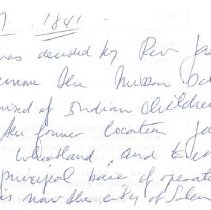 1841.
was decided by Rev Ja
the Mission
of Indian children
the former location
Wheatland, and
principal base of operat
is now the city of Salem